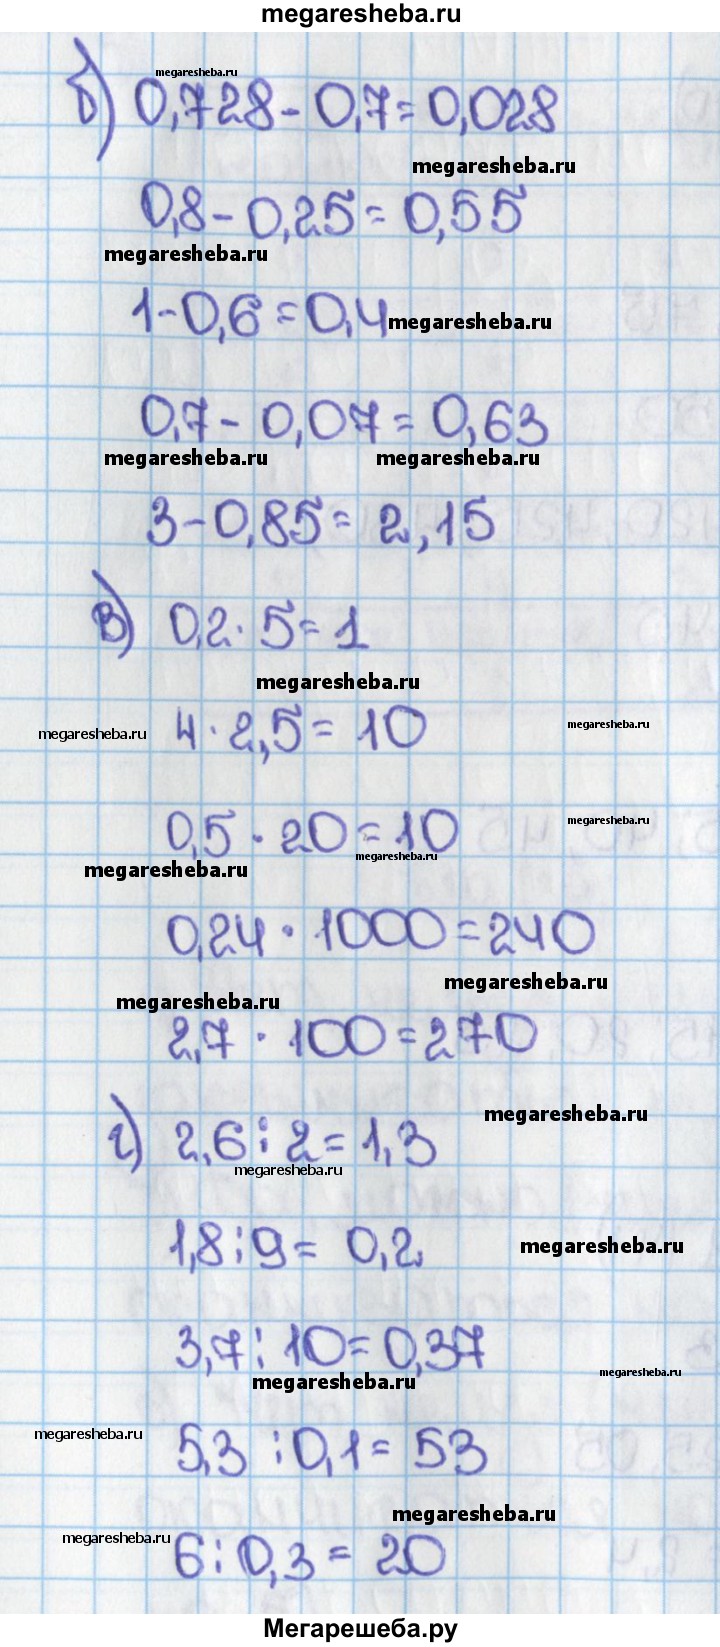 megaresheba.ru
megaresheba.ru
б) 0,728 - 0,7 = 0,028
megaresheba.ru
0,8 - 0,25 = 0,55
megaresheba.ru
1 - 0,6 = 0,4 megaresheba.ru
0,7 - 0,07 = 0,63
megaresheba.ru megaresheba.ru
3 - 0,85 = 2,15
в) 0,2 · 5 = 1
megaresheba.ru
megaresheba.ru 4 · 2,5 = 10 megaresheba.ru
0,5 · 20 = 10 megaresheba.ru
megaresheba.ru megaresheba.ru
0,24 · 1000 = 240
megaresheba.ru
megaresheba.ru
2,7 · 100 = 270
megaresheba.ru
г) 2,6 : 2 = 1,3
megaresheba.ru
1,8 : 9 = 0,2 megaresheba.ru
3,7 : 10 = 0,37
megaresheba.ru megaresheba.ru
megaresheba.ru 5,3 : 0,1 = 53
megaresheba.ru
megaresheba.ru 6 : 0,3 = 20
Мегарешеба.ру